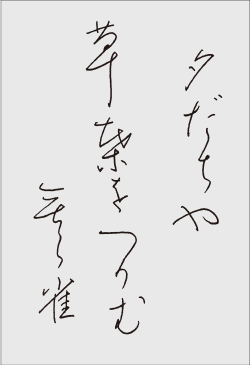 夕だちや
草葉をつかむ
むら雀